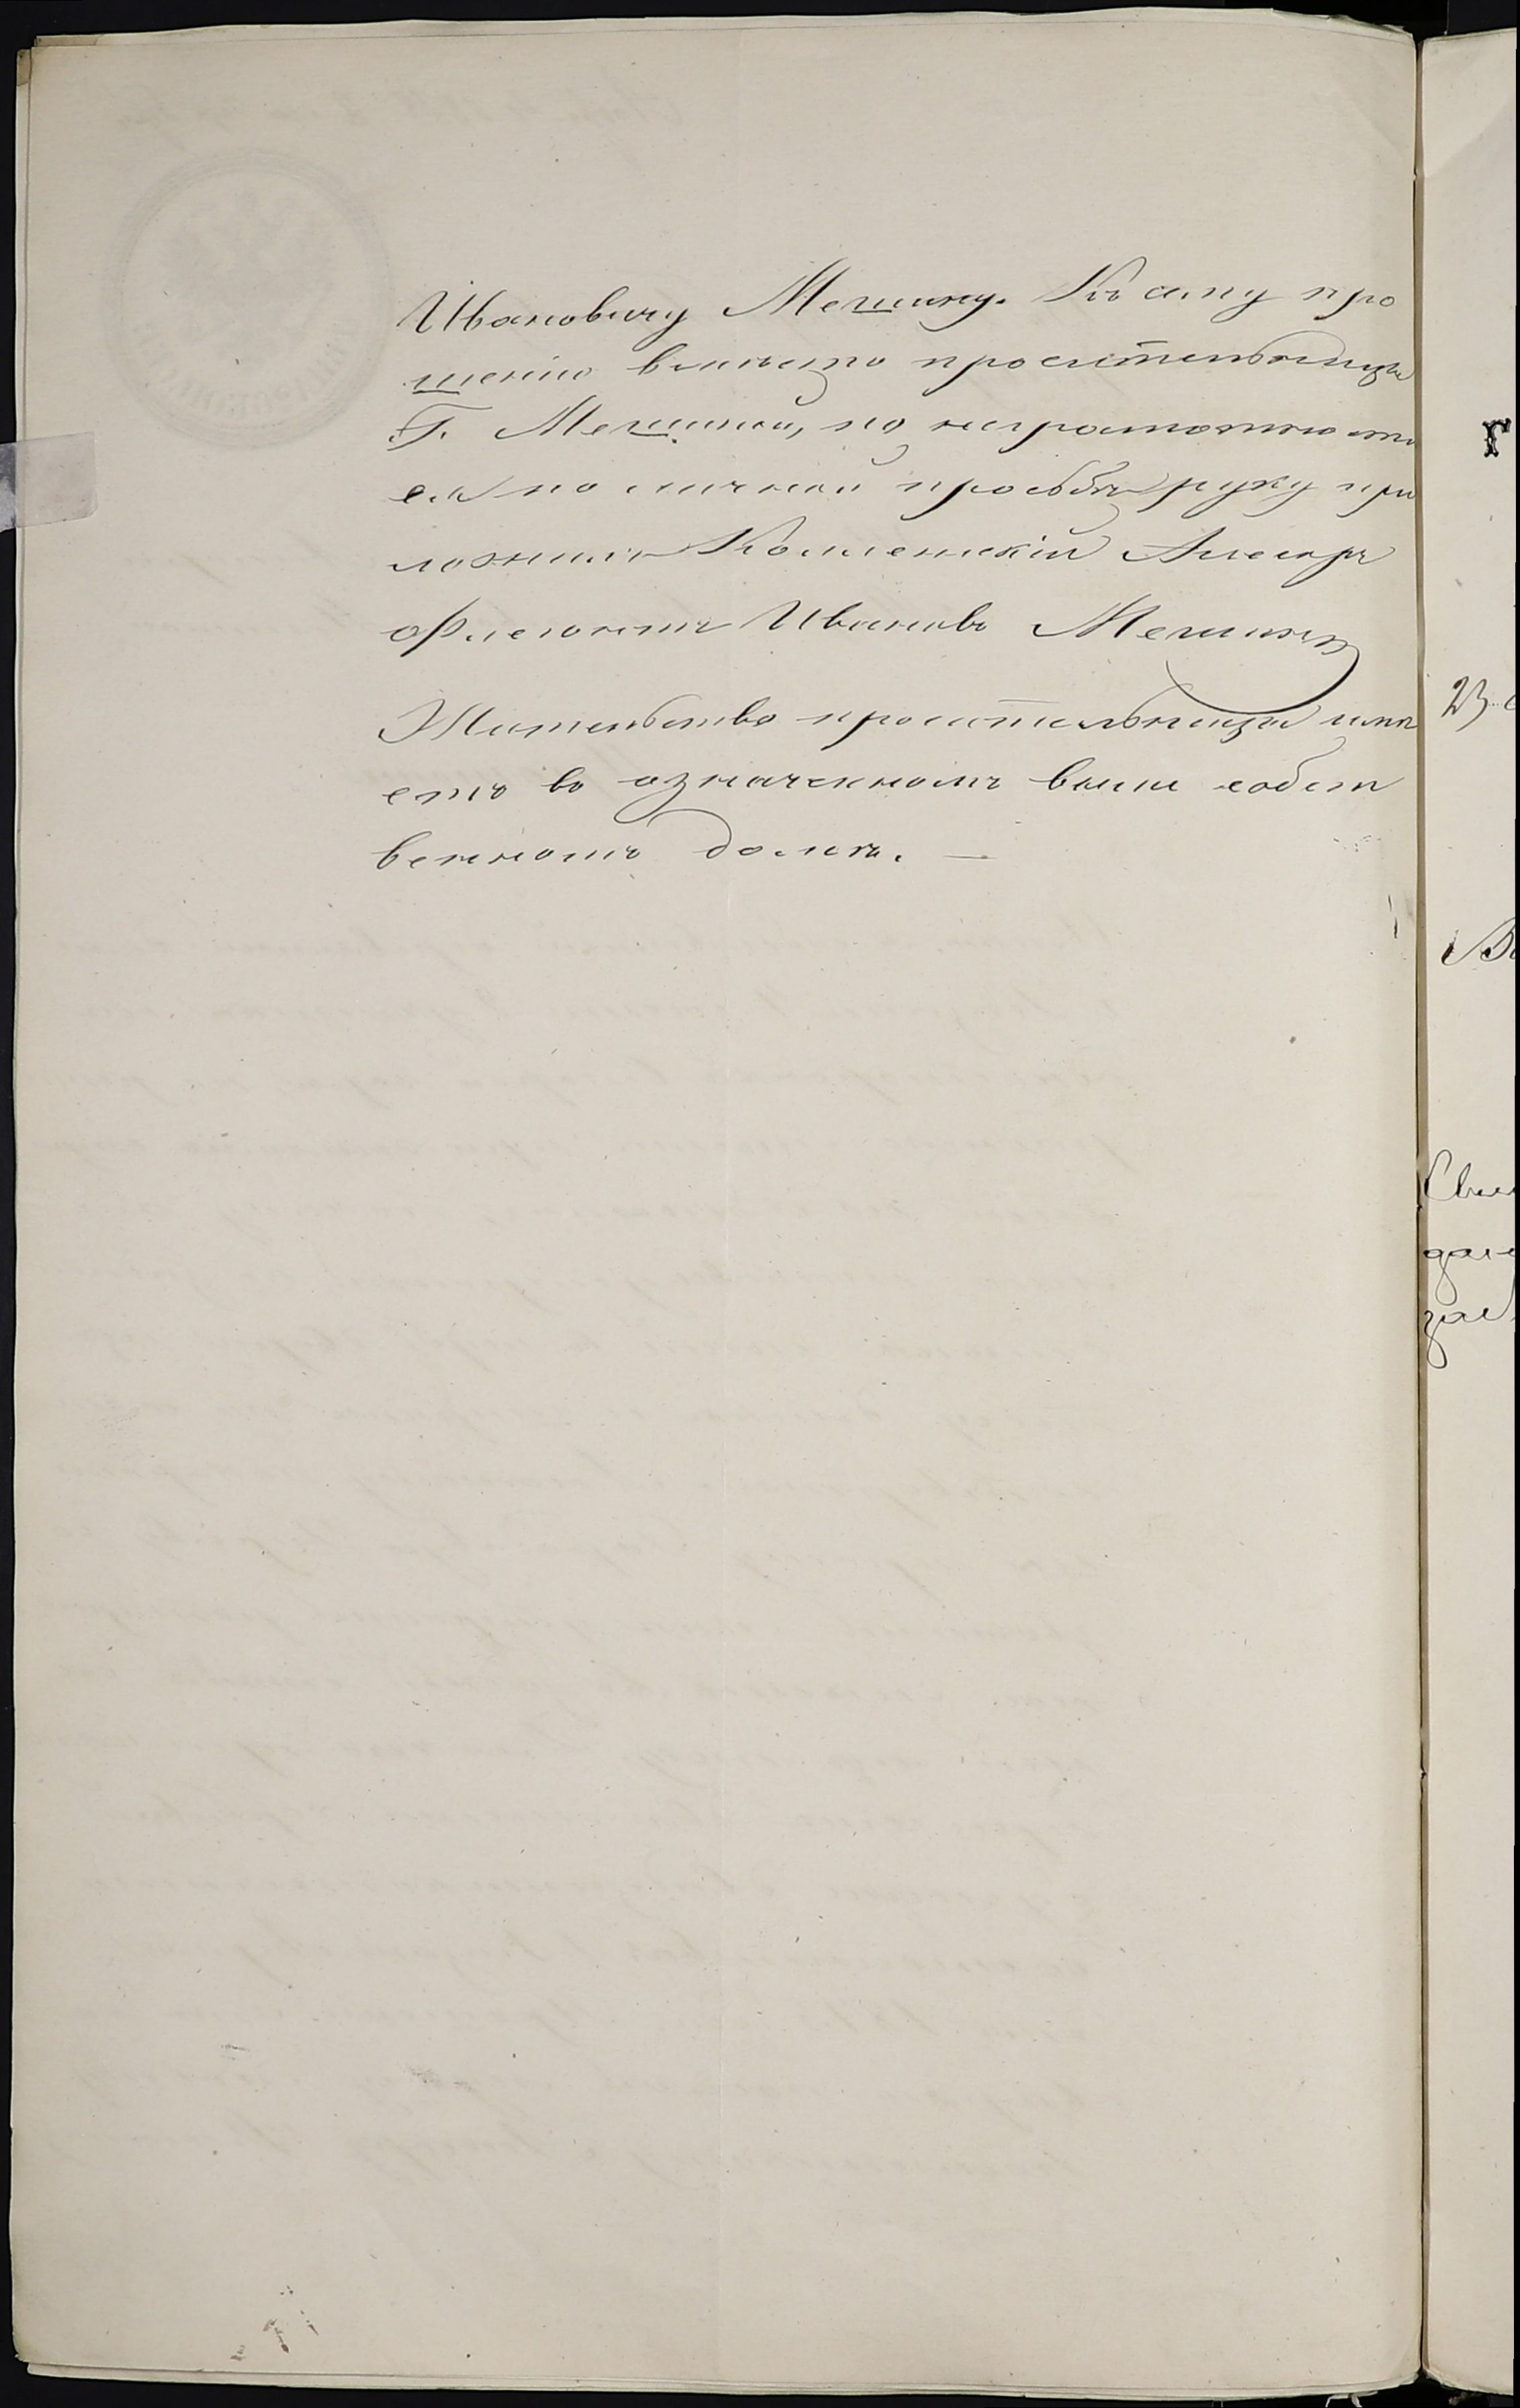 Ивановичу Мешкину. Къ сему про
шенію вмѣсто просительницы
Г. Мешкиной, по неграмотности
ея по личной просьбѣ руку при
ложилъ Коллежскій Ассесоръ
Флегонтъ Ивановъ Мешкинъ
Жительство просительница имѣ
етъ въ означенномъ выше собст
венномъ домѣ. —
Г
23